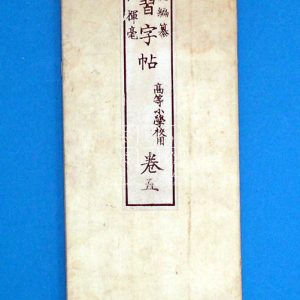 編纂
習字帖
高等小學校用
卷五
揮毫